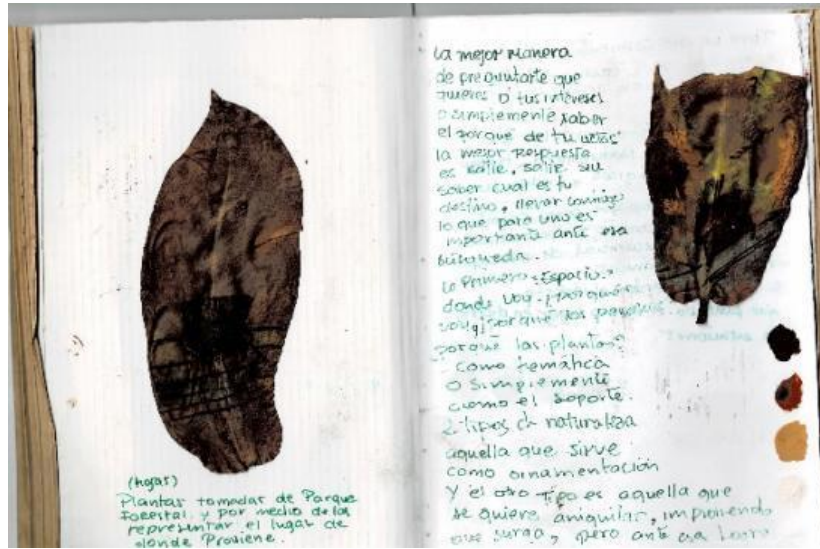 (hojas)
Plantas tomadas de Parque
Forestal y por medio de las
representar el lugar de
donde Proviene.
La mejor manera
de preguntarte que
quieres o tus intereses
o simplemente saber
el porque de tu
la mejor respuesta
es salir, salir sin
saber cual es tu
destino, llevar conmigo
lo que para uno es
importante ante esa
búsqueda.
Lo Primero: Espacio.
donde voy porque
voy porque los
porque las plantas?
como temática
o simplemente
como el soporte.
2 tipos de naturaleza
aquella que sirve
como ornamentación
Y el otro tipo es aquella que
se quiere aniquilar, impidiendo
que surga, pero ante esa